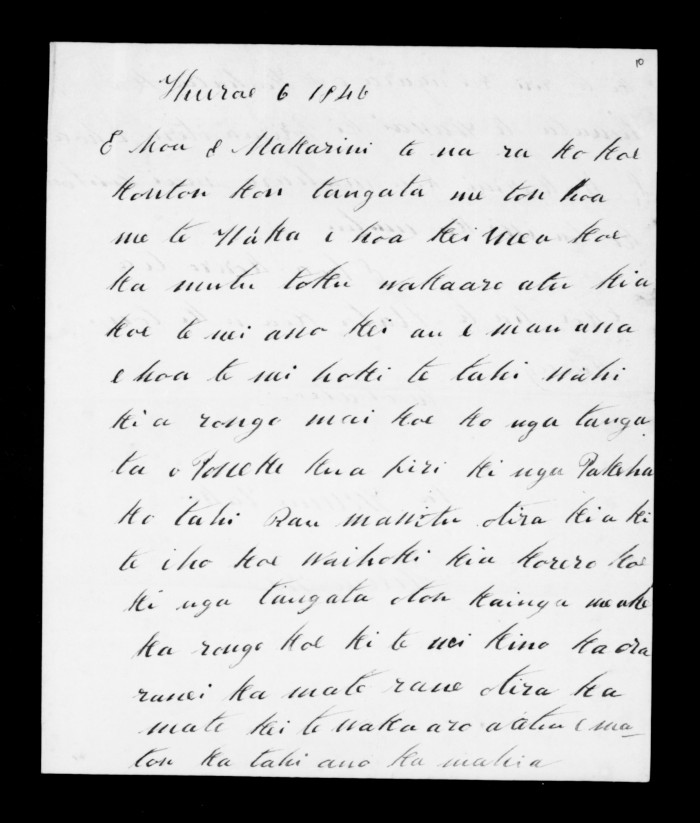 Hurae 6 1846
E hoa e Makarini te na ra ko koe
koutou kou tangata me tou hoa
me te Waka e hoa kei mea koe
ka mutu toku wakaaro atu kia
koe te nei ano kei au e mau ana
e hoa te nei hoki te tahi wahi
kia rongo mai koe ko nga tanga
ta o Poneke kua piri ki nga Pakeha
ko tahi Rau ma witu otira kia ki
te iho koe waihoki kia korero koe
ki nga tangata otou kainga meake
ka rongo koe ki te nei kino ka ora
ranei ka mate rane otira ka
mate kei te wakaaro a atu e ma_
tou ka tahi ano ka mahia